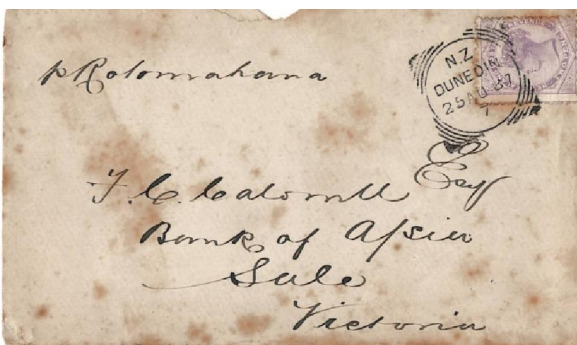 p Rotomahana
N.Z.
DUNEDIN
25 AU 87
7
Esq
Bank of A/sia
Sale
Victoria